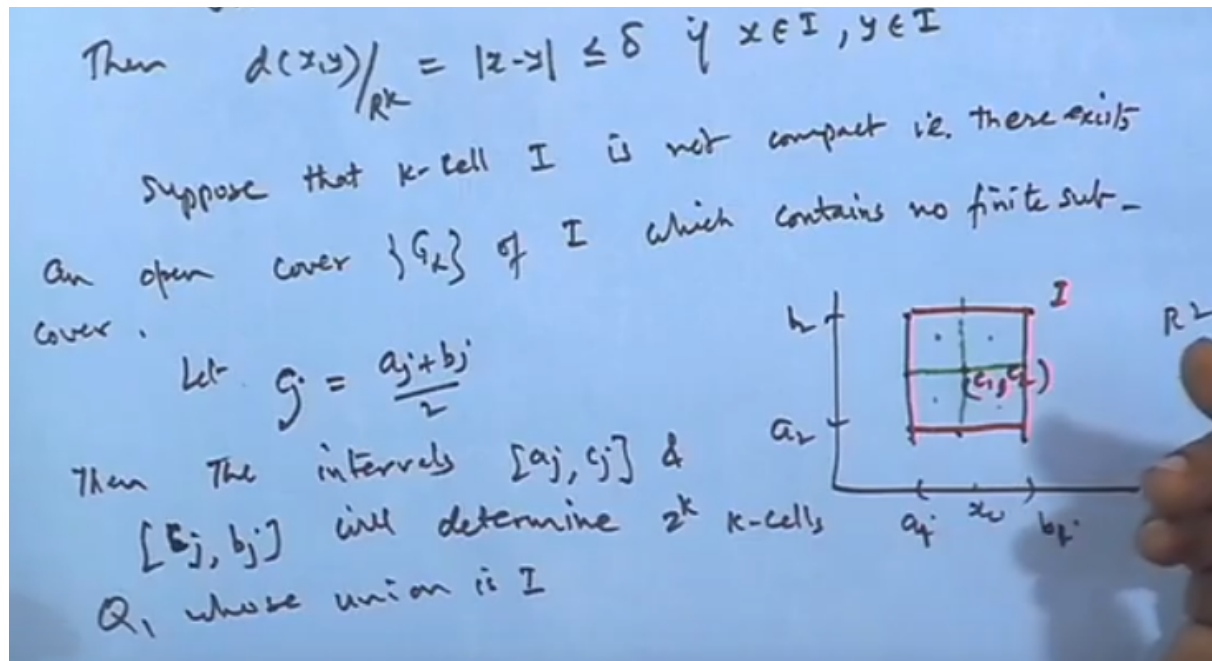 Then d(x,y)/R^k = |x-y| ≤ δ if x ∈ I, y ∈ I
Suppose that k-cell I is not compact i.e. there exists
an open cover {G_α} of I which contains no finite sub-
cover.
Let c_j = (a_j + b_j)/2
Then The intervals [a_j, c_j] &
[c_j, b_j] will determine 2^k k-cells
Q_1 whose union is I
I
R^2
b_2
(c_1, c_2)
a_2